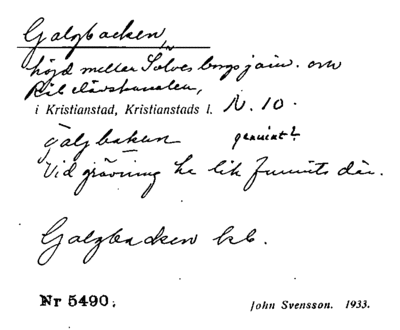 Galgbacken,
höjd mellan Sölvesborgsjärnv. och
i Kristianstad, Kristianstads l. N. 10.
galgbaken genuint?
Vid grävning ha lik funnits där.
Galgbacken kb.
Nr 5490. John Svensson. 1933.